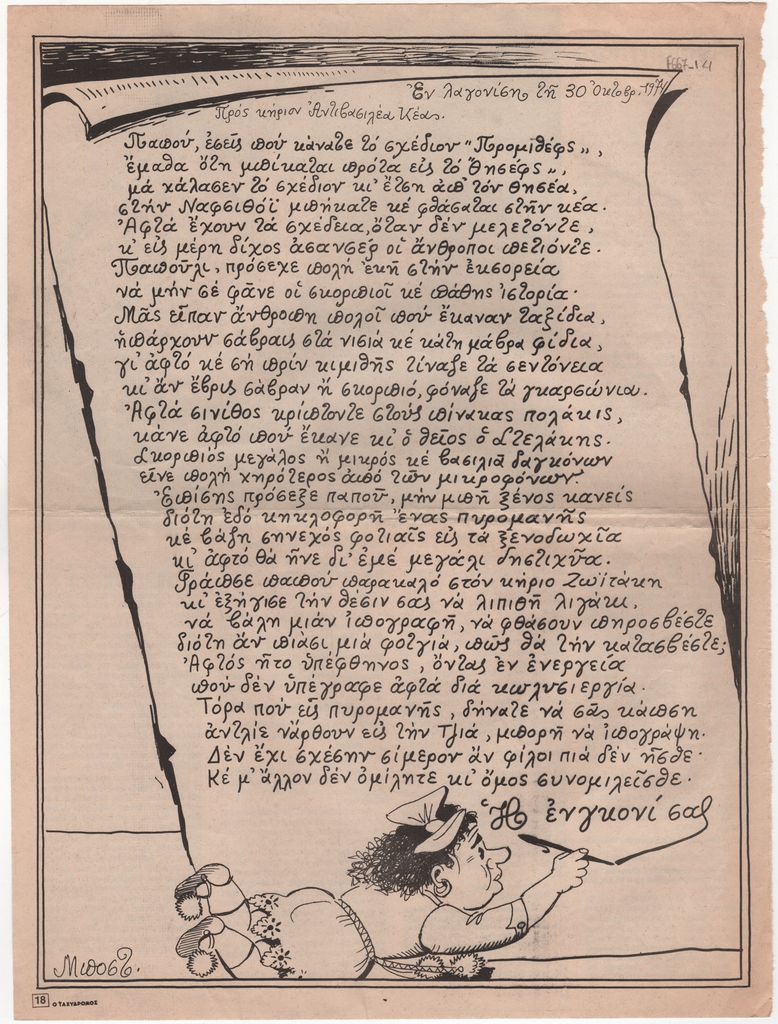 F667_14
Ἐν λαγονίση τῆ 30 Ὀκτοβρ. 1974
Πρός κήριον Ἀντιβασιλέα Κέας.
Παπού, ἐσεῖς πού κάνατε τό σχέδιον "Προμιθέφς",
ἔμαθα ὅτη μπίκαται πρότα εἰς τό "Θησέφς",
μά χάλασεν τό σχέδιον κι' ἔτση ἀπ' τόν Θησέα,
στήν Ναφσιθόϊ μπήκατε κέ φθάσαται στήν κέα.
Ἀφτά ἔχουν τά σχέδεια, ὅταν δέν μελετόντε,
κ' εἰς μέρη δίχος ἀσανσέρ οἱ ἄνθροποι πετιόντε.
Παπούλι, πρόσεχε πολή ἐκῆ στήν ἐκσορεία
νά μήν σέ φᾶνε οἱ σκορπιοί κέ πάθης ἰστορία.
Μᾶς εἶπαν ἄνθροπη πολοῖ πού ἔκαναν ταξίδια,
ἠπάρχουν σάβραις στά νισιά κέ κάτη μάβρα φίδια,
γι' ἀφτό κέ σή πρίν κιμιθῆς τίναξε τά σεντόνεια
κι' ἄν ἔβρις σάβραν ἤ σκορπιό, φόναξε τά γκαρσώνια.
Ἀφτά σινίθος κρίπτοντε στούς πίνακας πολάκις,
κάνε ἀφτό πού ἔκανε κι' ὁ θεῖος ὁ Στελάκης.
Σκορπιός μεγάλος ἤ μικρός κέ βασιλιά δαγκόνων
εἶνε πολή χηρότερος ἀπό τῶν μικροφόνων.
Ἐπίσης πρόσεξε παπού, μήν μπῆ ξένος κανείς
διότη ἐδό κηκλοφορῆ ἕνας πυρομανής
κέ βάζη σηνεχός φοτιαῖς εἰς τά ξενοδωχῖα
κι' ἀφτό θά ἦνε δι' ἐμέ μεγάλι δηστιχῦα.
Γράπσε παπού παρακαλό στόν κήριο Ζωϊτάκη
κι' ἐξήγισε τήν θέσιν σας νά λιπιθῆ λιγάκι,
νά βάλη μιάν ἱπογραφή, νά φθάσουν πηροσβέστε
διότη ἄν πιάσι μιά φοτγιά, πῶς θά τήν κατασβέστε;
Ἀφτός ἦτο ὑπέφθηνος, ὄντας ἐν ἐνεργεία
πού δέν ὑπέγραφε ἀφτά διά κωλυσιεργία.
Τόρα πού εἶς πυρομανής, δήνατε νά σᾶς κάπση
ἀντλίε νἄρθουν εἰς τήν Τζιά, μπορῆ νά ἱπογράψη.
Δέν ἔχι σχέσην σίμερον ἄν φίλοι πιά δέν ἦσθε.
Κέ μ' ἄλλον δέν ὁμίλητε κι' ὅμος συνομιλεῖσθε.
Ἡ ἐνγκονί σας
Μποστ.
18 Ο ΤΑΧΥΔΡΟΜΟΣ